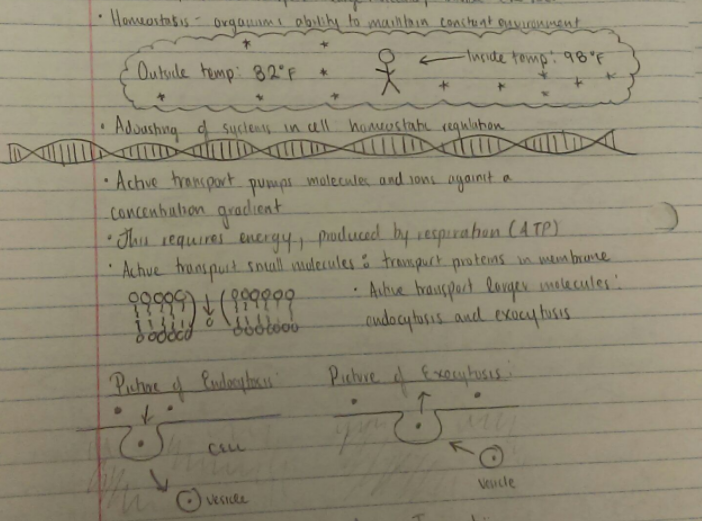 · Homeostasis - organisms ability to maintain constant environment
Outside temp: 32°F
Inside temp: 98°F
· Adjusting of systems in cell homeostatic regulation
· Active transport pumps molecules and ions against a
concentration gradient
· This requires energy, produced by respiration (ATP)
· Active transport small molecules: transport proteins in membrane
· Active transport larger molecules:
endocytosis and exocytosis
Picture of Endocytosis:
Picture of Exocytosis:
cell
vesicle
vesicle